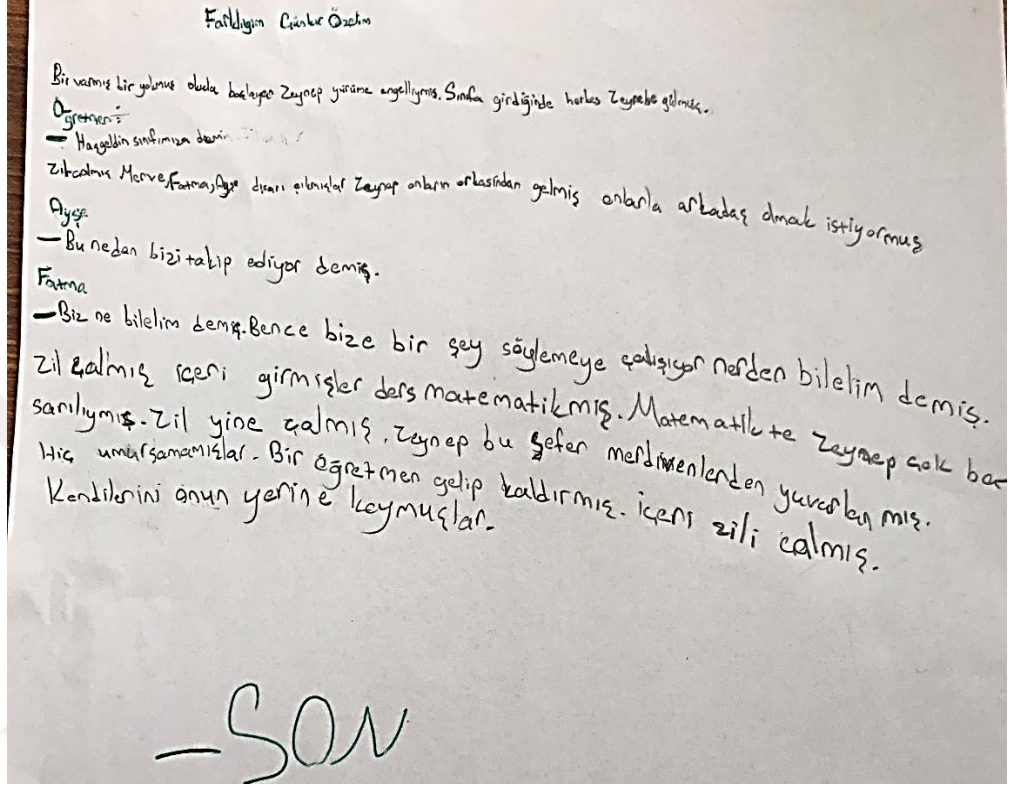 Farklılığın Günlük Özetim
Bir varmış bir yokmuş okula başlayan Zeynep yürüme engelliymiş. Sınıfa girdiğinde herkes Zeynebe gülmüş.
Öğretmen:
– Hoşgeldin sınıfımıza demiş
Zil çalmış Merve, Fatma, Ayşe dışarı çıkmışlar Zeynep onların arkasından gelmiş onlarla arkadaş olmak istiyormuş
Ayşe
– Bu neden bizi takip ediyor demiş.
Fatma
– Biz ne bilelim demiş. Bence bize bir şey söylemeye çalışıyor nerden bilelim demiş.
Zil çalmış içeri girmişler ders matematikmiş. Matematikte Zeynep çok baş
sarılıymış. Zil yine çalmış. Zeynep bu sefer merdivenlerden yuvarlanmış.
Hiç umursamamışlar. Bir öğretmen gelip kaldırmış. içeri zili çalmış.
Kendilerini onun yerine koymuşlar.
– SON